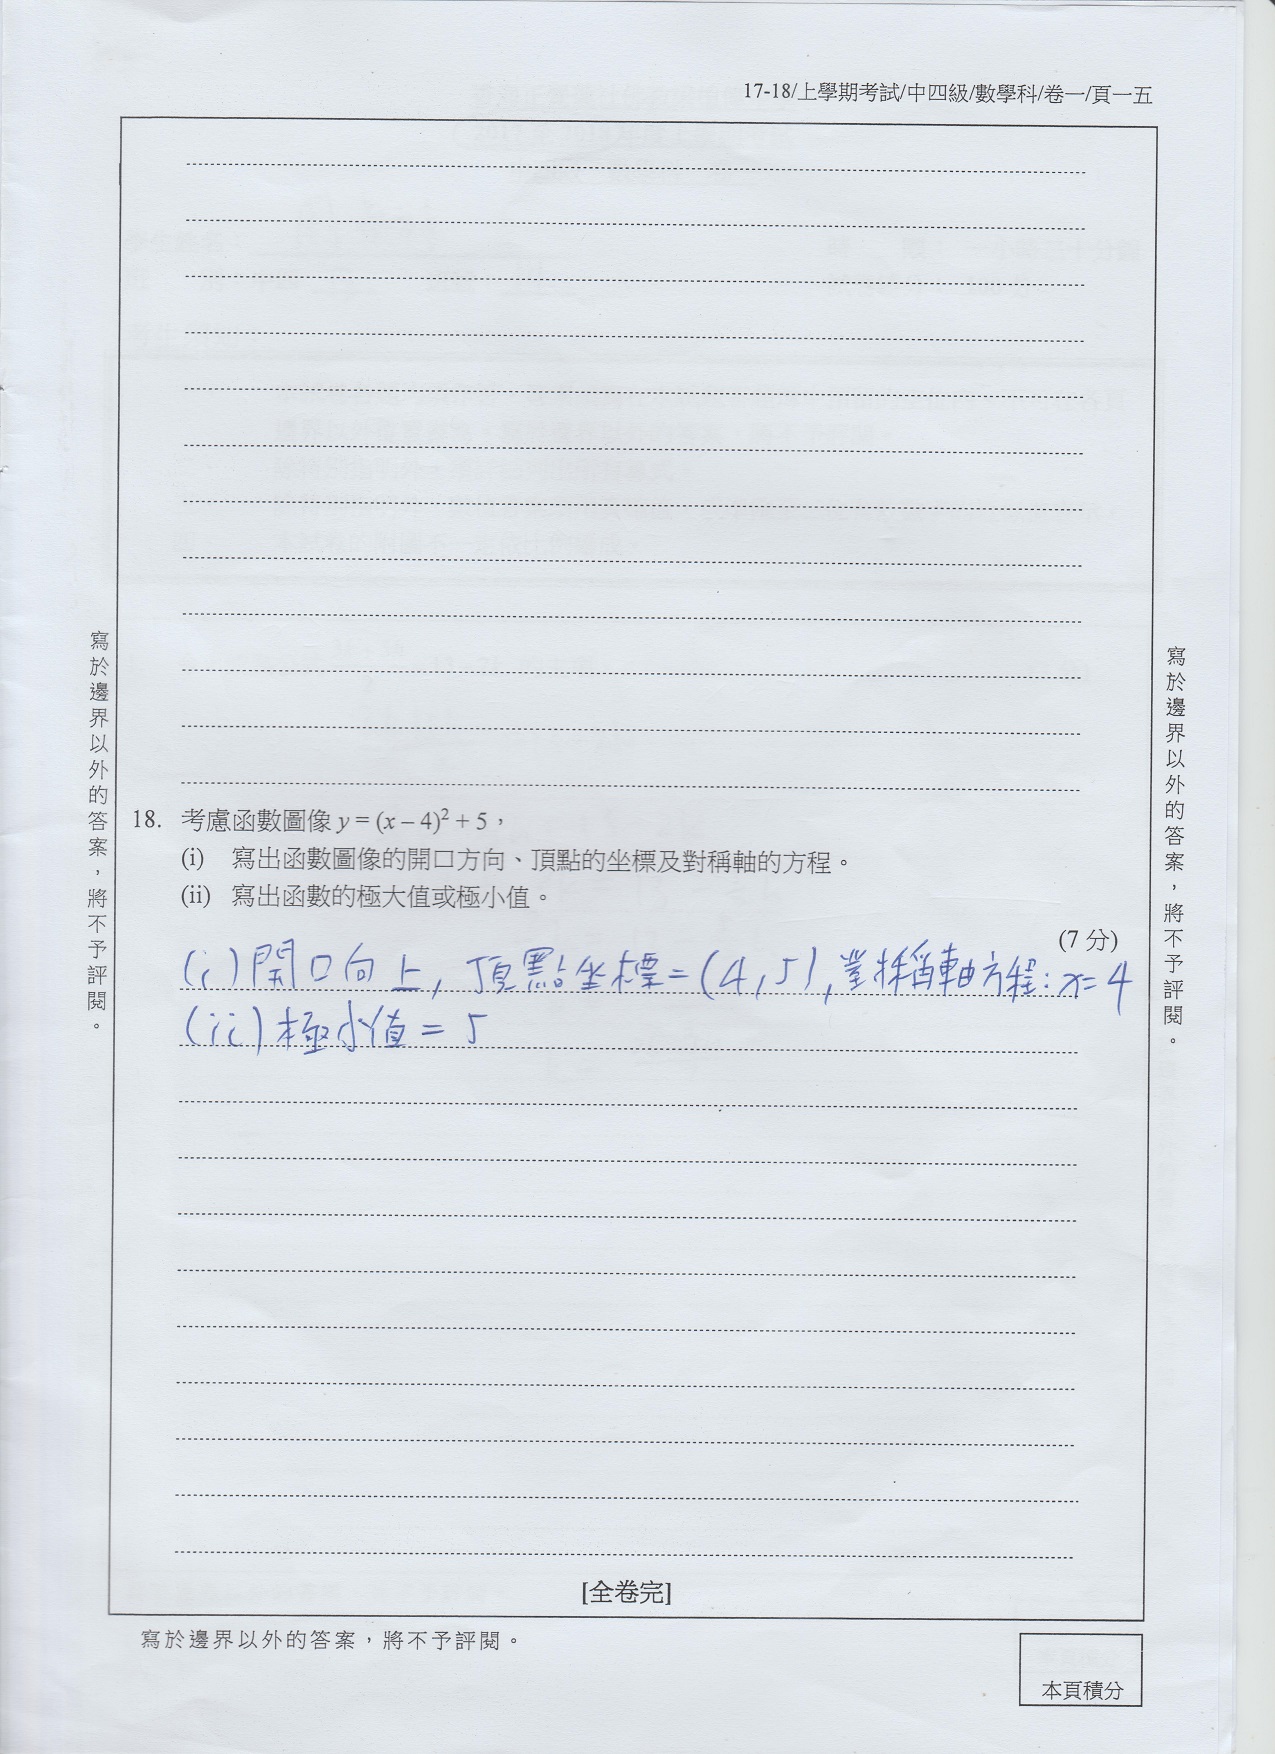 17-18/上學期考試/中四級/數學科/卷一/頁一五
寫於邊界以外的答案，將不予評閱。
18. 考慮函數圖像 y = (x – 4)² + 5，
(i) 寫出函數圖像的開口方向、頂點的坐標及對稱軸的方程。
(ii) 寫出函數的極大值或極小值。
(7 分)
(i) 開口向上, 頂點坐標 = (4, 5), 對稱軸方程: x = 4
(ii) 極小值 = 5
[全卷完]
寫於邊界以外的答案，將不予評閱。
寫於邊界以外的答案，將不予評閱。
本頁積分